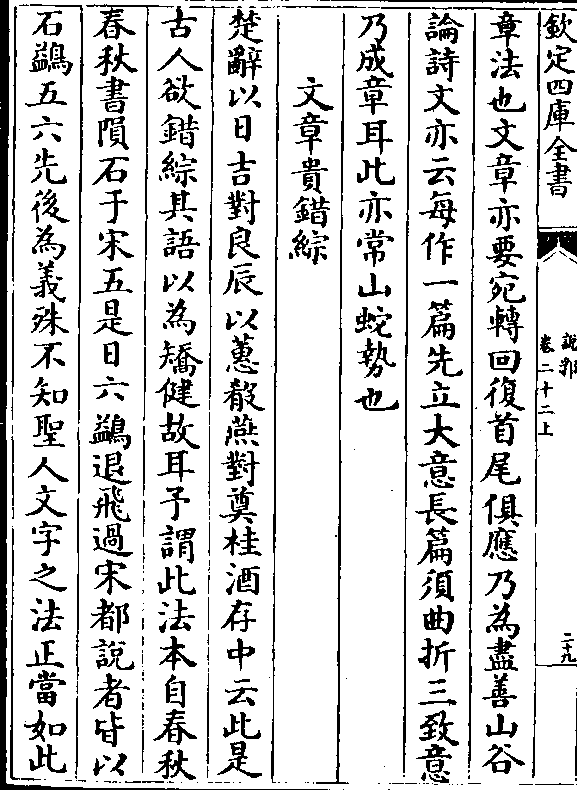 欽定四庫全書
說郛
卷二十二上
二十九
章法也文章亦要宛轉回復首尾俱應乃為盡善山谷
論詩文亦云每作一篇先立大意長篇須曲折三致意
乃成章耳此亦常山蛇勢也
文章貴錯綜
楚辭以日吉對良辰以蕙殽燕對奠桂酒存中云此是
古人欲錯綜其語以為矯健故耳予謂此法本自春秋
春秋書隕石于宋五是日六鷁退飛過宋都說者皆以
石鷁五六先後為義殊不知聖人文字之法正當如此